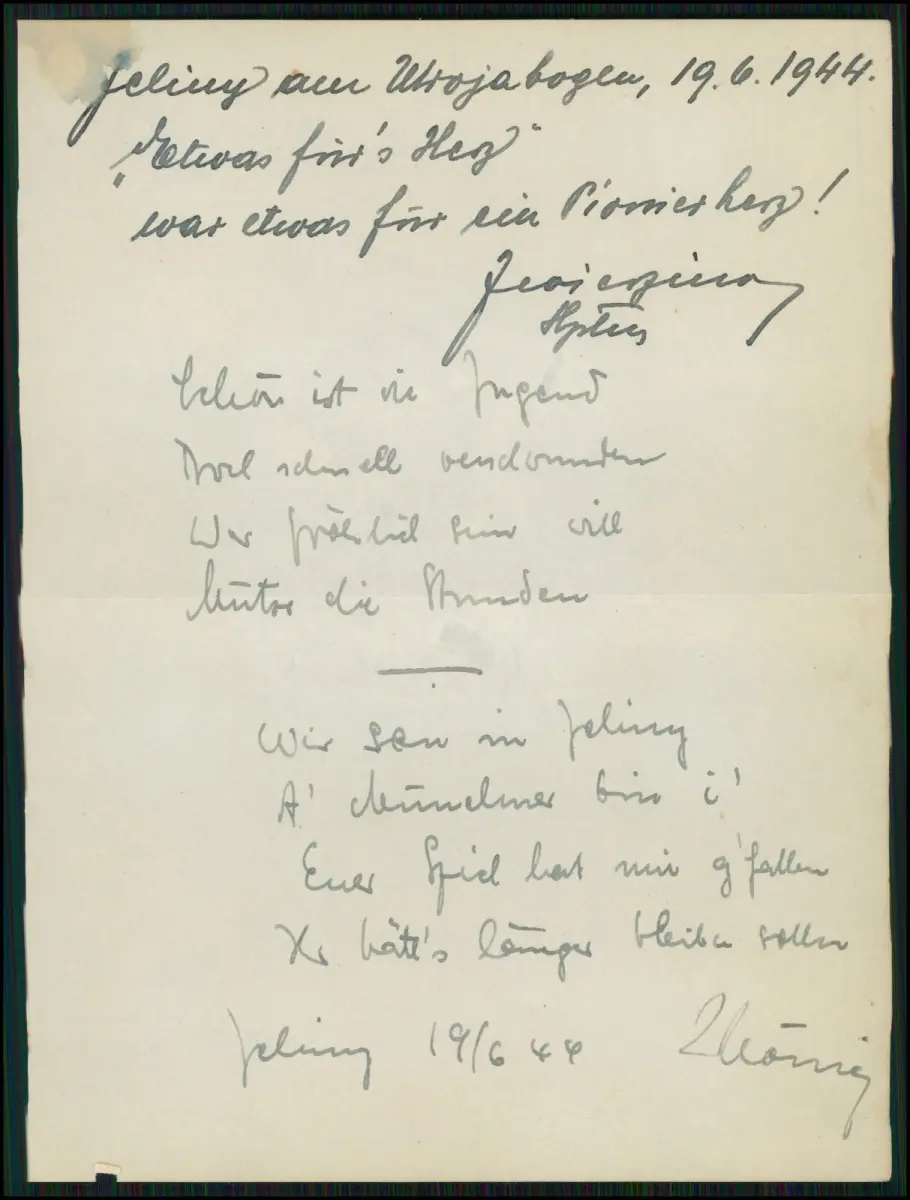 Jeliny am Utrojabogen, 19.6.1944.
"Etwas für's Herz"
war etwas für ein Pionierherz!
Hptm
Schön ist die Jugend
Doch schnell verschwunden
Wer fröhlich sein will
Nütze die Stunden
Wir san in Jeliny
A' Münchner bin i'
Euer Spiel hat mir g'fallen
Ihr hätt's länger bleiben sollen
Jeliny 19/6 44